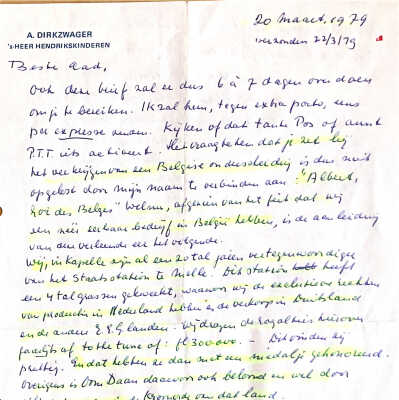 A. DIRKZWAGER
's-HEER HENDRIKSKINDEREN
20 maart, 1979
verzonden 22/3/79
Beste Aad,
Ook deze brief zal er dus 6 à 7 dagen over doen
om je te bereiken. Ik zal hem, tegen extra porto, eens
per expresse zenden. Kijken of dat tante Pos of
P.T.T. iets activeert. Het vraagteken dat je zet bij
het verkrijgen van een Belgische onderscheiding is dus niet
opgelost door mijn naam te verbinden aan: "Albert,
Roi des Belges" Welnu, afgezien van het feit dat wij
een zeer bedrijf in België hebben, is de aanleiding
van de verleende eer het volgende.
Wij, in Kapelle zijn al een 20 tal jaren vertegenwoordiger
van het Staatsstation te Melle. Dit station heeft
een 4 tal grassen gekweekt, waarvan wij de exclusieve rechten
van productie in Nederland hebben en de verkoop in Duitsland
en de andere E.E.G landen. Wij dragen de royalties hierover
jaarlijks af to the tune of: fl 300.000. - Dit vinden zij
prettig. En dat hebben ze dan met een medalje gehonoreerd.
Overigens is Oom Daan daarvoor ook beloond en wel door
van dat land.